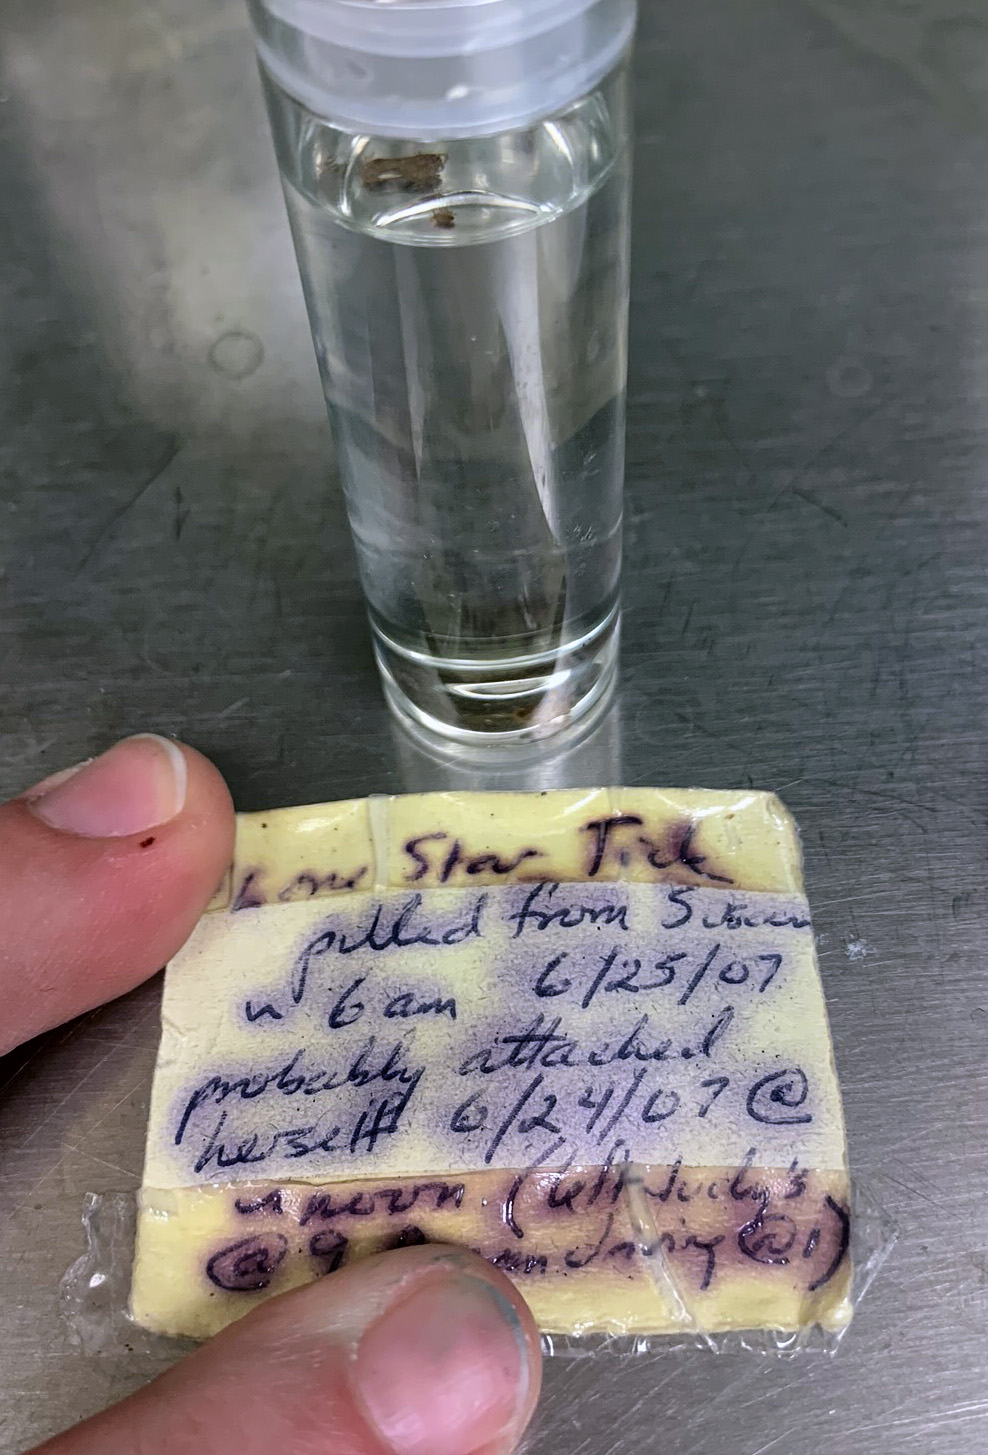 Lone Star Tick
pulled from Susan
~ 6 am 6/25/07
probably attached
herself 6/24/07 @
~ noon (left Judy's
@ 9 dairy @ 1)